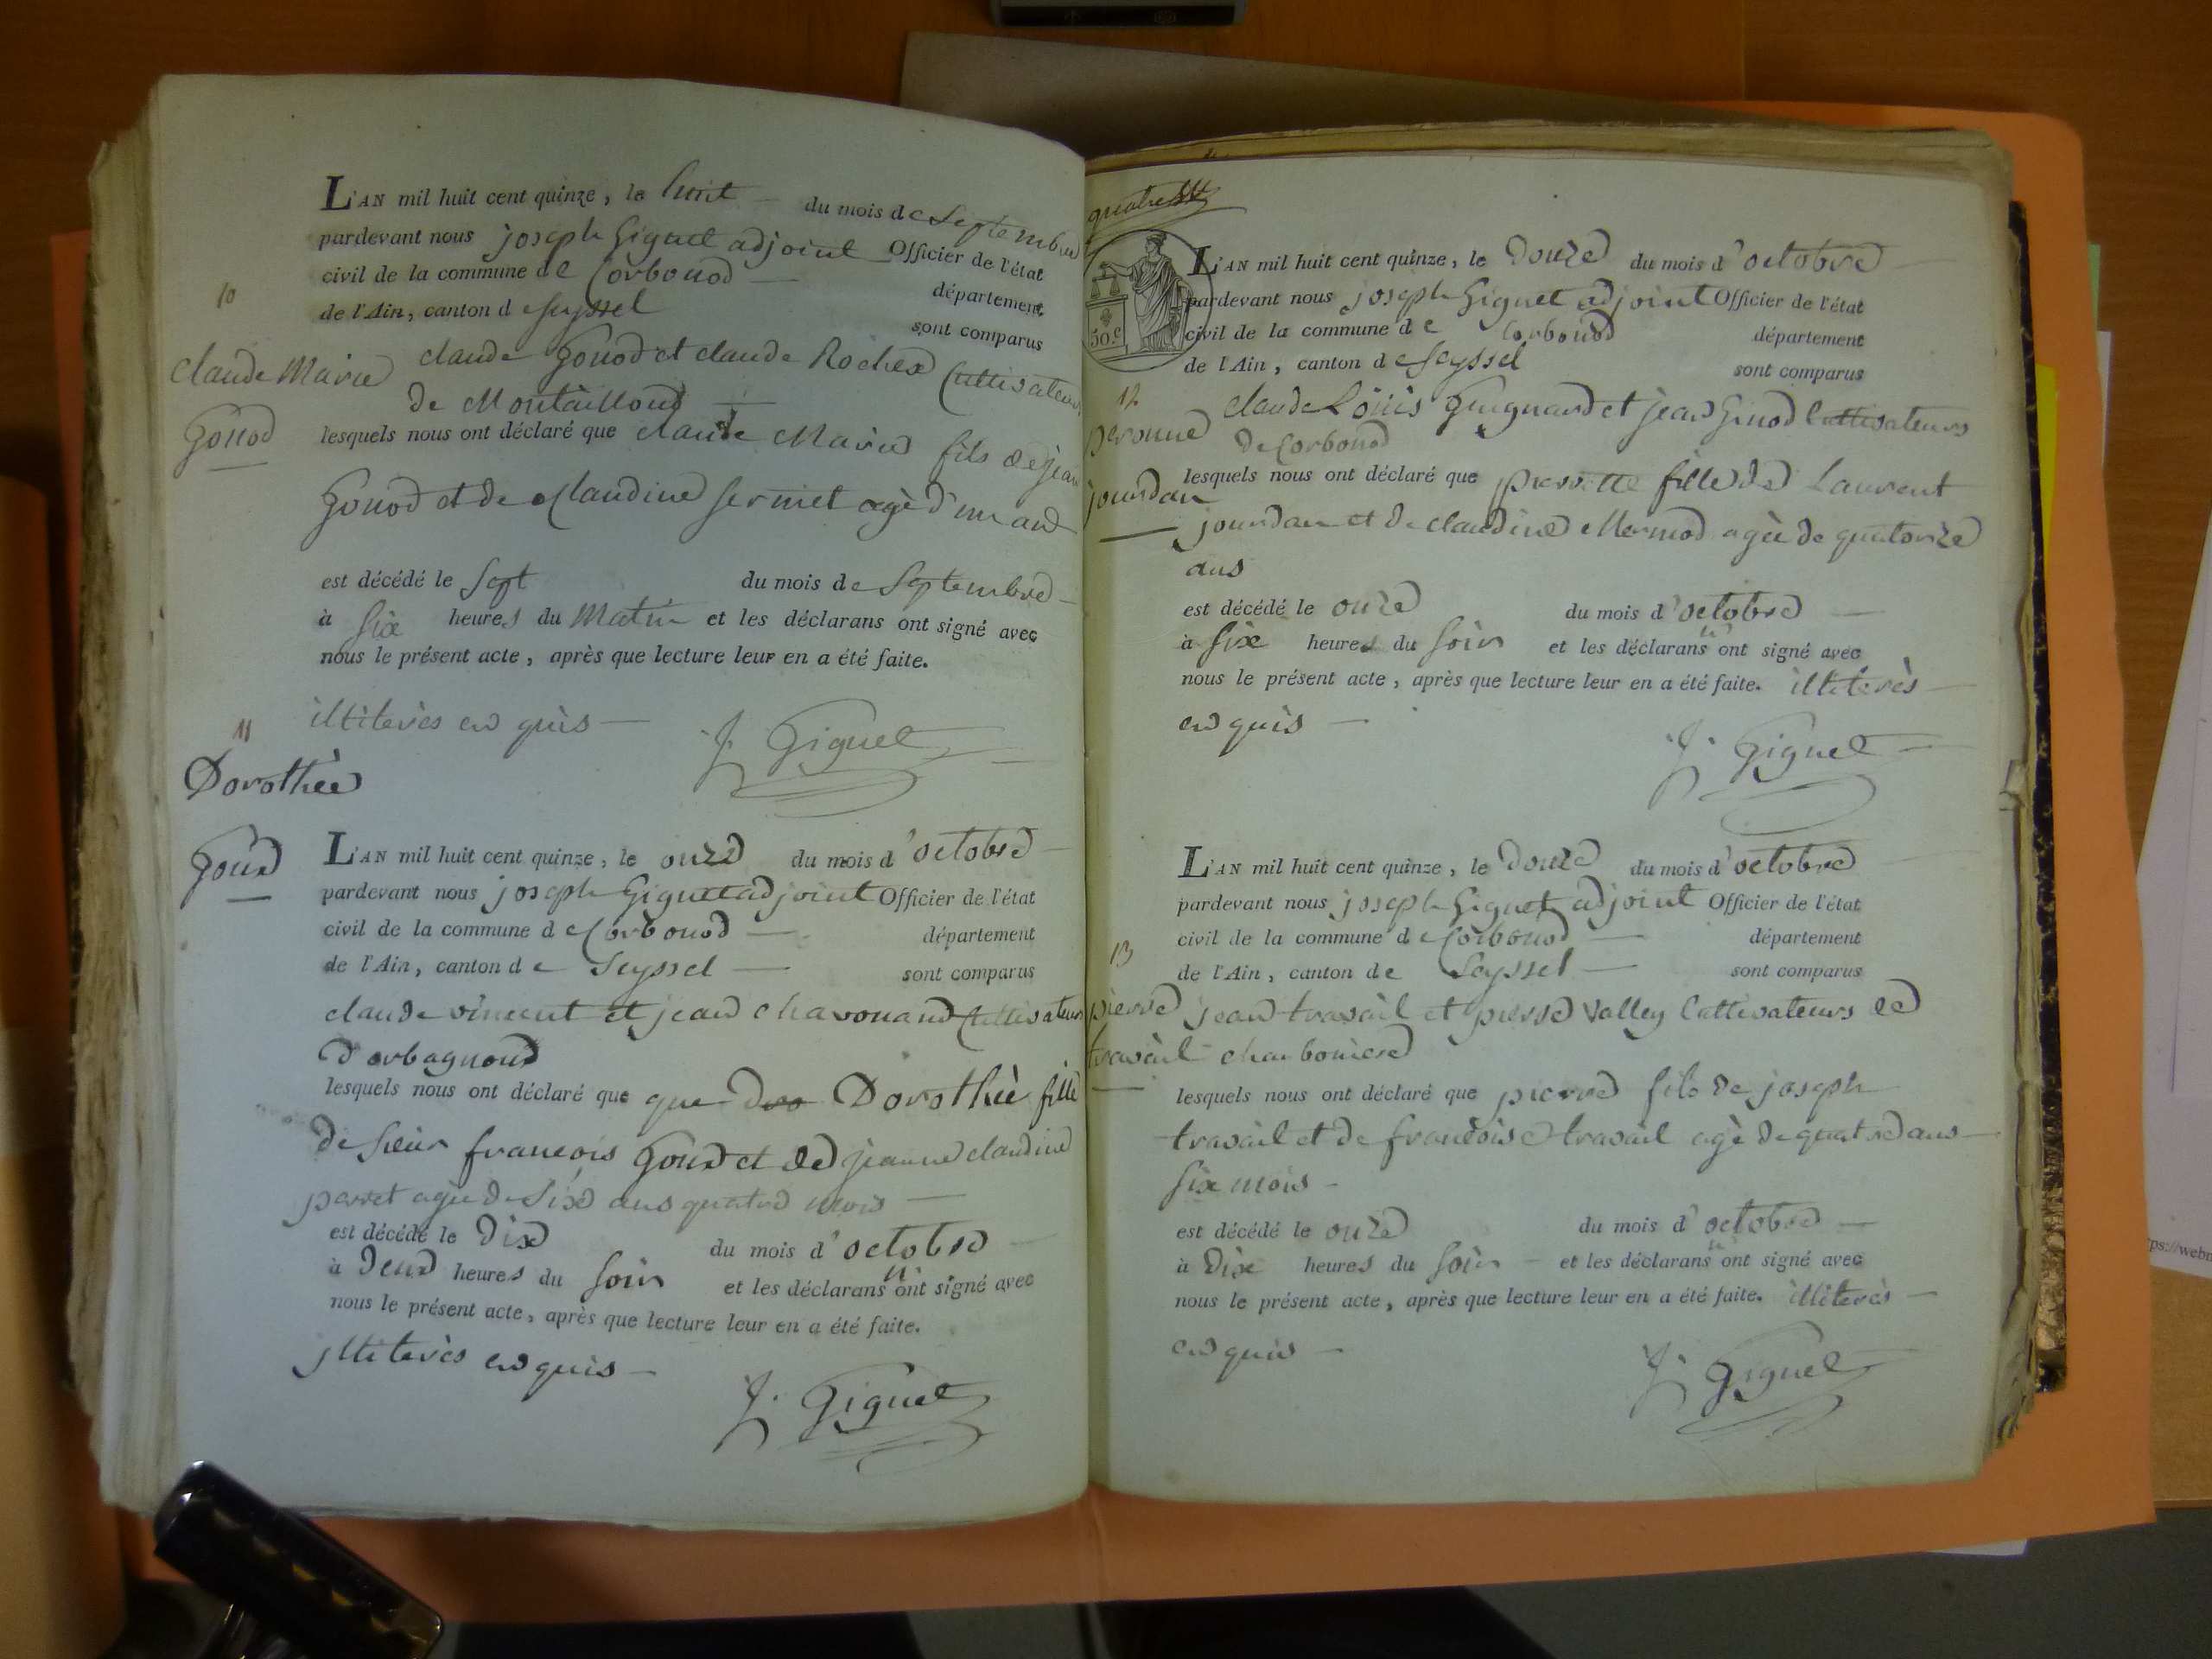 10
Claude Marie
Gonod
L'AN mil huit cent quinze, le huit du mois de Septembre
pardevant nous joseph Giguet adjoint Officier de l'état
civil de la commune de Corbonod département
de l'Ain, canton de Seyssel sont comparus
claude Gonod et claude Rochex Cultivateurs
de Montailloud
lesquels nous ont déclaré que claude Marie fils de jean
Gonod et de Claudine Sermet agè d'un and
est décédé le Sept du mois de Septembre
à Six heures du Matin et les déclarans ont signé avec
nous le présent acte, après que lecture leur en a été faite.
illiterés en quis
J. Giguet
11
Dorothée
Goux
L'AN mil huit cent quinze, le onze du mois d'octobre
pardevant nous joseph Giguet adjoint Officier de l'état
civil de la commune de Corbonod département
de l'Ain, canton de Seyssel sont comparus
claude vincent et jean chavonand Cultivateurs
d'orbagnoux
lesquels nous ont déclaré que que Doro Dorothèe fille
de Sieur francois Goux et de jeanne claudine
perret agée de Six ans quatre mois
est décédé le Dix du mois d'octobre
à Deux heures du Soir et les déclarans n'ont signé avec
nous le présent acte, après que lecture leur en a été faite.
illiterès en quis
J. Giguet
50.c
12
peronne
jourdan
L'AN mil huit cent quinze, le Douze du mois d'octobre
pardevant nous joseph Giguet adjoint Officier de l'état
civil de la commune de Corbonod département
de l'Ain, canton de Seyssel sont comparus
claude Loüis Guignard et jean Ginod Cultivateurs
de Corbonod
lesquels nous ont déclaré que pierrette fille de Laurent
jourdan et de claudine Mermod agée de quatorze
ans
est décédé le onze du mois d'octobre
à Six heures du Soir et les déclarans n'ont signé avec
nous le présent acte, après que lecture leur en a été faite. illiterès
en quis
J. Giguet
13
pierre
travail
L'AN mil huit cent quinze, le Douze du mois d'octobre
pardevant nous joseph Giguet adjoint Officier de l'état
civil de la commune de Corbonod département
de l'Ain, canton de Seyssel sont comparus
jean travail et pierre Valley Cultivateurs de
charboniere
lesquels nous ont déclaré que pierre fils de joseph
travail et de francoise travail agè de quatre ans
Six mois
est décédé le onze du mois d'octobre
à Dix heures du Soir et les déclarans n'ont signé avec
nous le présent acte, après que lecture leur en a été faite. illiterès
en quis
J. Giguet